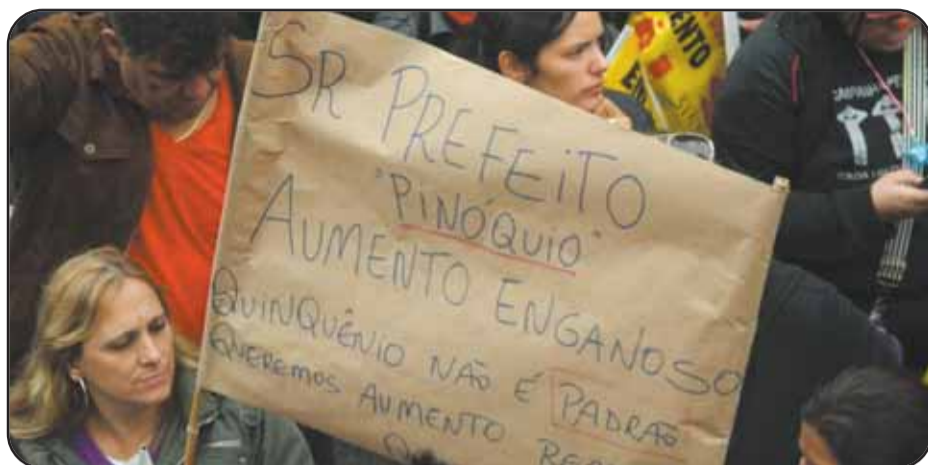 SR PREFEITO
"PINÓQUIO"
AUMENTO ENGANOSO
QUINQUÊNIO NÃO É PADRÃO
QUEREMOS AUMENTO